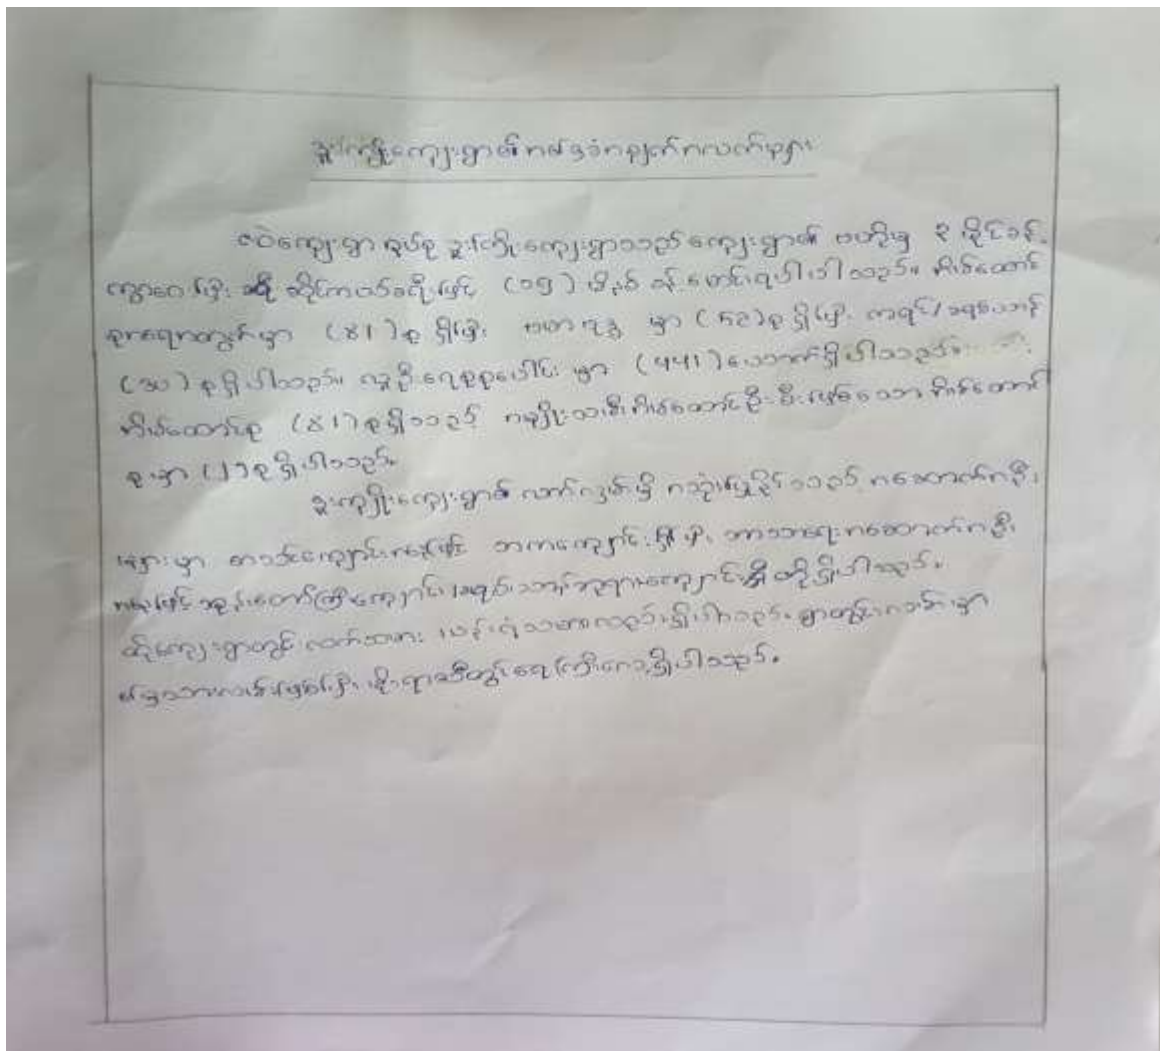 ဒူးကြိုးကျေးရွာ၏ အခြေခံအချက်အလက်များ
ကျေးရွာအုပ်စု ဒူးကြိုးကျေးရွာသည် ကျေးရွာ၏ မှ ၃ မိုင်ခန့်
ကွာဝေးပြီး ဆိုင်ကယ်ခရီးဖြင့် (၁၅) မိနစ်ခန့် မောင်းရပါသည်။ အိမ်ထောင်
စုအရေအတွက်မှာ (၈၁) စုရှိပြီး ဗုဒ္ဓ မှာ (၅၁) စုရှိပြီး ကရင်/ခရစ်ယာန်
(၃၀) စုရှိပါသည်။ လူဦးရေစုစုပေါင်းမှာ (၄၄၁) ယောက်ရှိပါသည်။
အိမ်ထောင်စု (၈၁) စုရှိသည့် အမျိုးသမီးအိမ်ထောင်ဦးစီးဖြစ်သော အိမ်ထောင်
စုမှာ စုရှိပါသည်။
ဒူးကြိုးကျေးရွာ၏ လက်လှမ်းမှီ အသုံးပြုနိုင်သည့် အဆောက်အဦး
များမှာ စာသင်ကျောင်းအနေဖြင့် အကကျောင်းရှိပြီး ဘာသာရေးအဆောက်အဦး
အနေဖြင့် ဘုန်းတော်ကြီးကျောင်း၊ ခရစ်ယာန်ဘုရားကျောင်း တို့ရှိပါသည်။
ထိုကျေးရွာတွင် လက်သမား၊ ပန်းရံသမားလည်းရှိပါသည်။ ရွာတွင်းလမ်းမှာ
မြေသားလမ်းဖြစ်ပြီး မိုးရာသီတွင် ရေကြီးလေ့ရှိပါသည်။